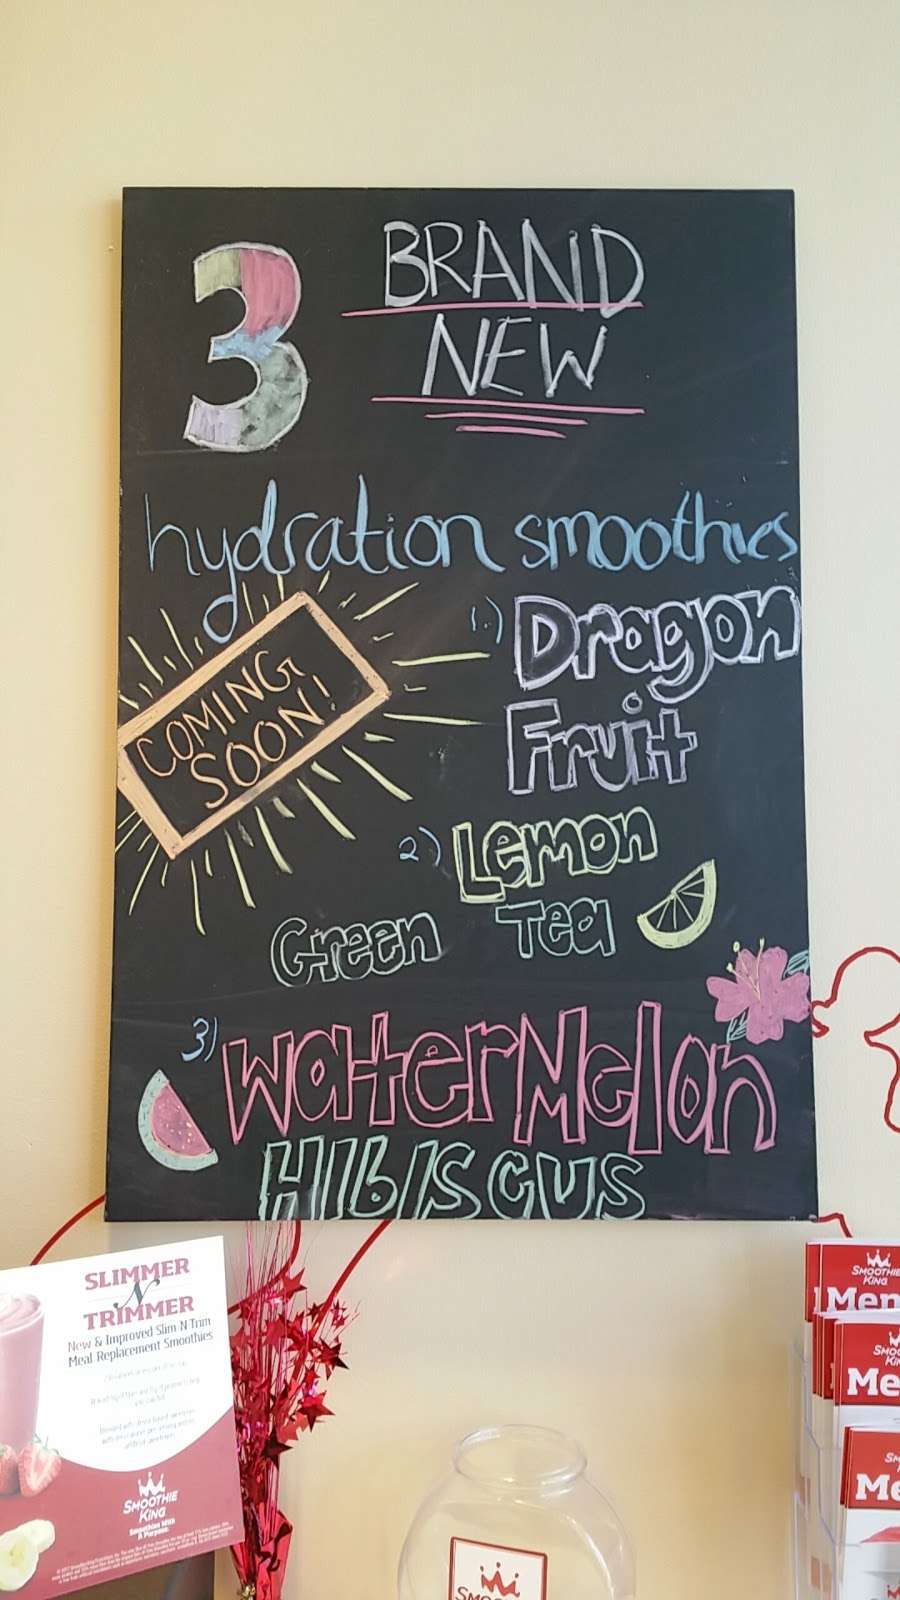 3 BRAND
NEW
hydration smoothies
COMING
SOON!
1.) Dragon
Fruit
2) Lemon
Green Tea
3) WaterMelon
HIBISCUS
SLIMMER
N
TRIMMER
New & Improved Slim-N-Trim
Meal Replacement Smoothies
SMOOTHIE
KING
Smoothies With
A Purpose.
SMOOTHIE
KING
Men
SMOO
Me
SM
Me
SMOOTHIE